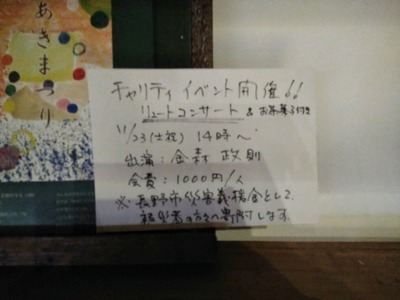 あきまつり
チャリティイベント開催!!
リュートコンサート & お茶菓子付き
11/23(土祝) 14時〜
出演:金森 政則
会費:1000円/人
※長野市災害義援金として
被災者の方々へ寄附します